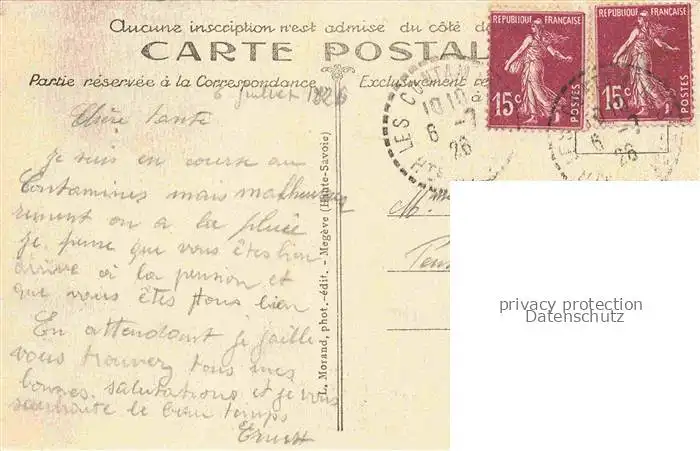 Aucune inscription n'est admise du côté de
CARTE POSTAL
Partie réservée à la Correspondance
Exclusivement ré
à
6 Juillet 1926
Chère tante
Je suis en course au
Contamines mais malheureu
rement on a la pluie
Je pense que vous êtes bien
arrivé à la pension et
que vous êtes tous bien
En attendant je
vous trouver tous mes
bonnes salutations et je vous
souhaite le beau temps
Ernest
L. Morand, phot.-édit. - Megève (Haute-Savoie)
REPUBLIQUE FRANÇAISE
15c
POSTES
REPUBLIQUE FRANÇAISE
15c
POSTES
LES CONTAM
6 -7
26
HTE
LES
6 -7
26
M
Pen
privacy protection
Datenschutz